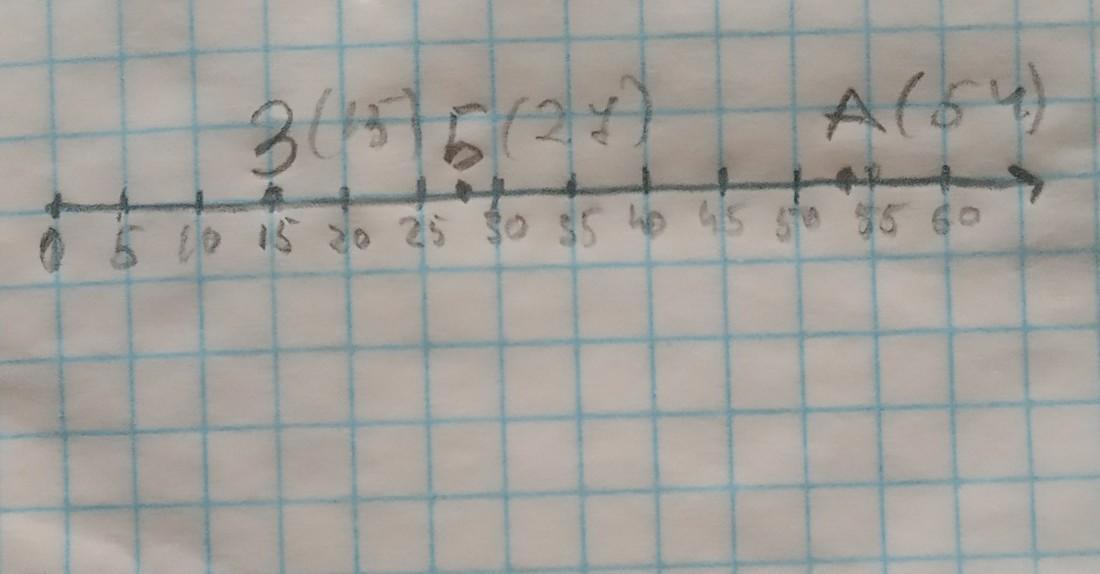 З(15) Б(27) А(54)
0 5 10 15 20 25 30 35 40 45 50 55 60